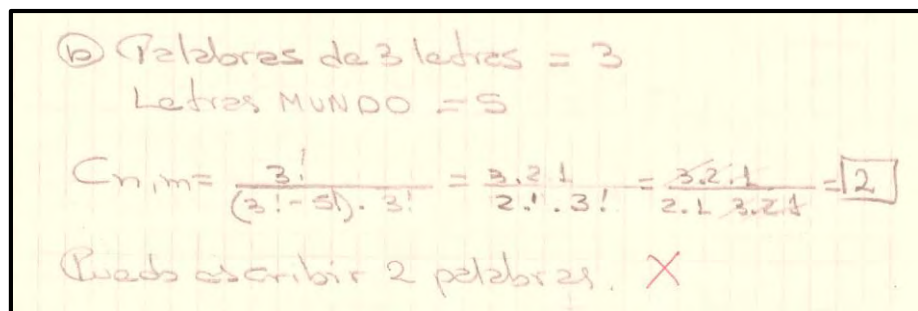 ⓑ Palabras de 3 letras = 3
Letras MUNDO = 5
Cn,m = 3! / (3!-5!)·3! = 3.2.1 / 2.!.3! = 3.2.1 / 2.1 3.2.1 = 2
Puedo escribir 2 palabras. X